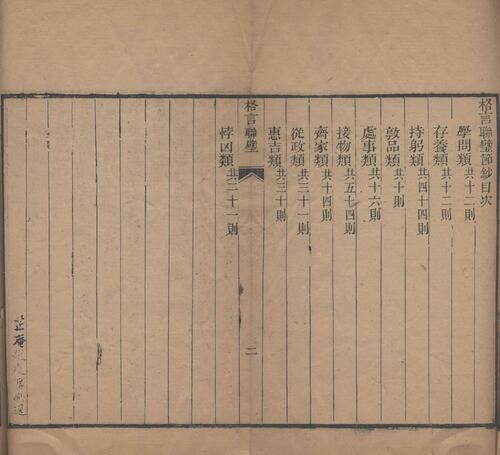 格言聯璧節鈔目次
學問類共十二則
存養類共十二則
持躬類共四十四則
敦品類共十則
處事類共十六則
接物類共五十四則
齊家類共十四則
從政類共三十一則
惠吉類共三十則
格言聯璧
二
悖凶類共二十一則